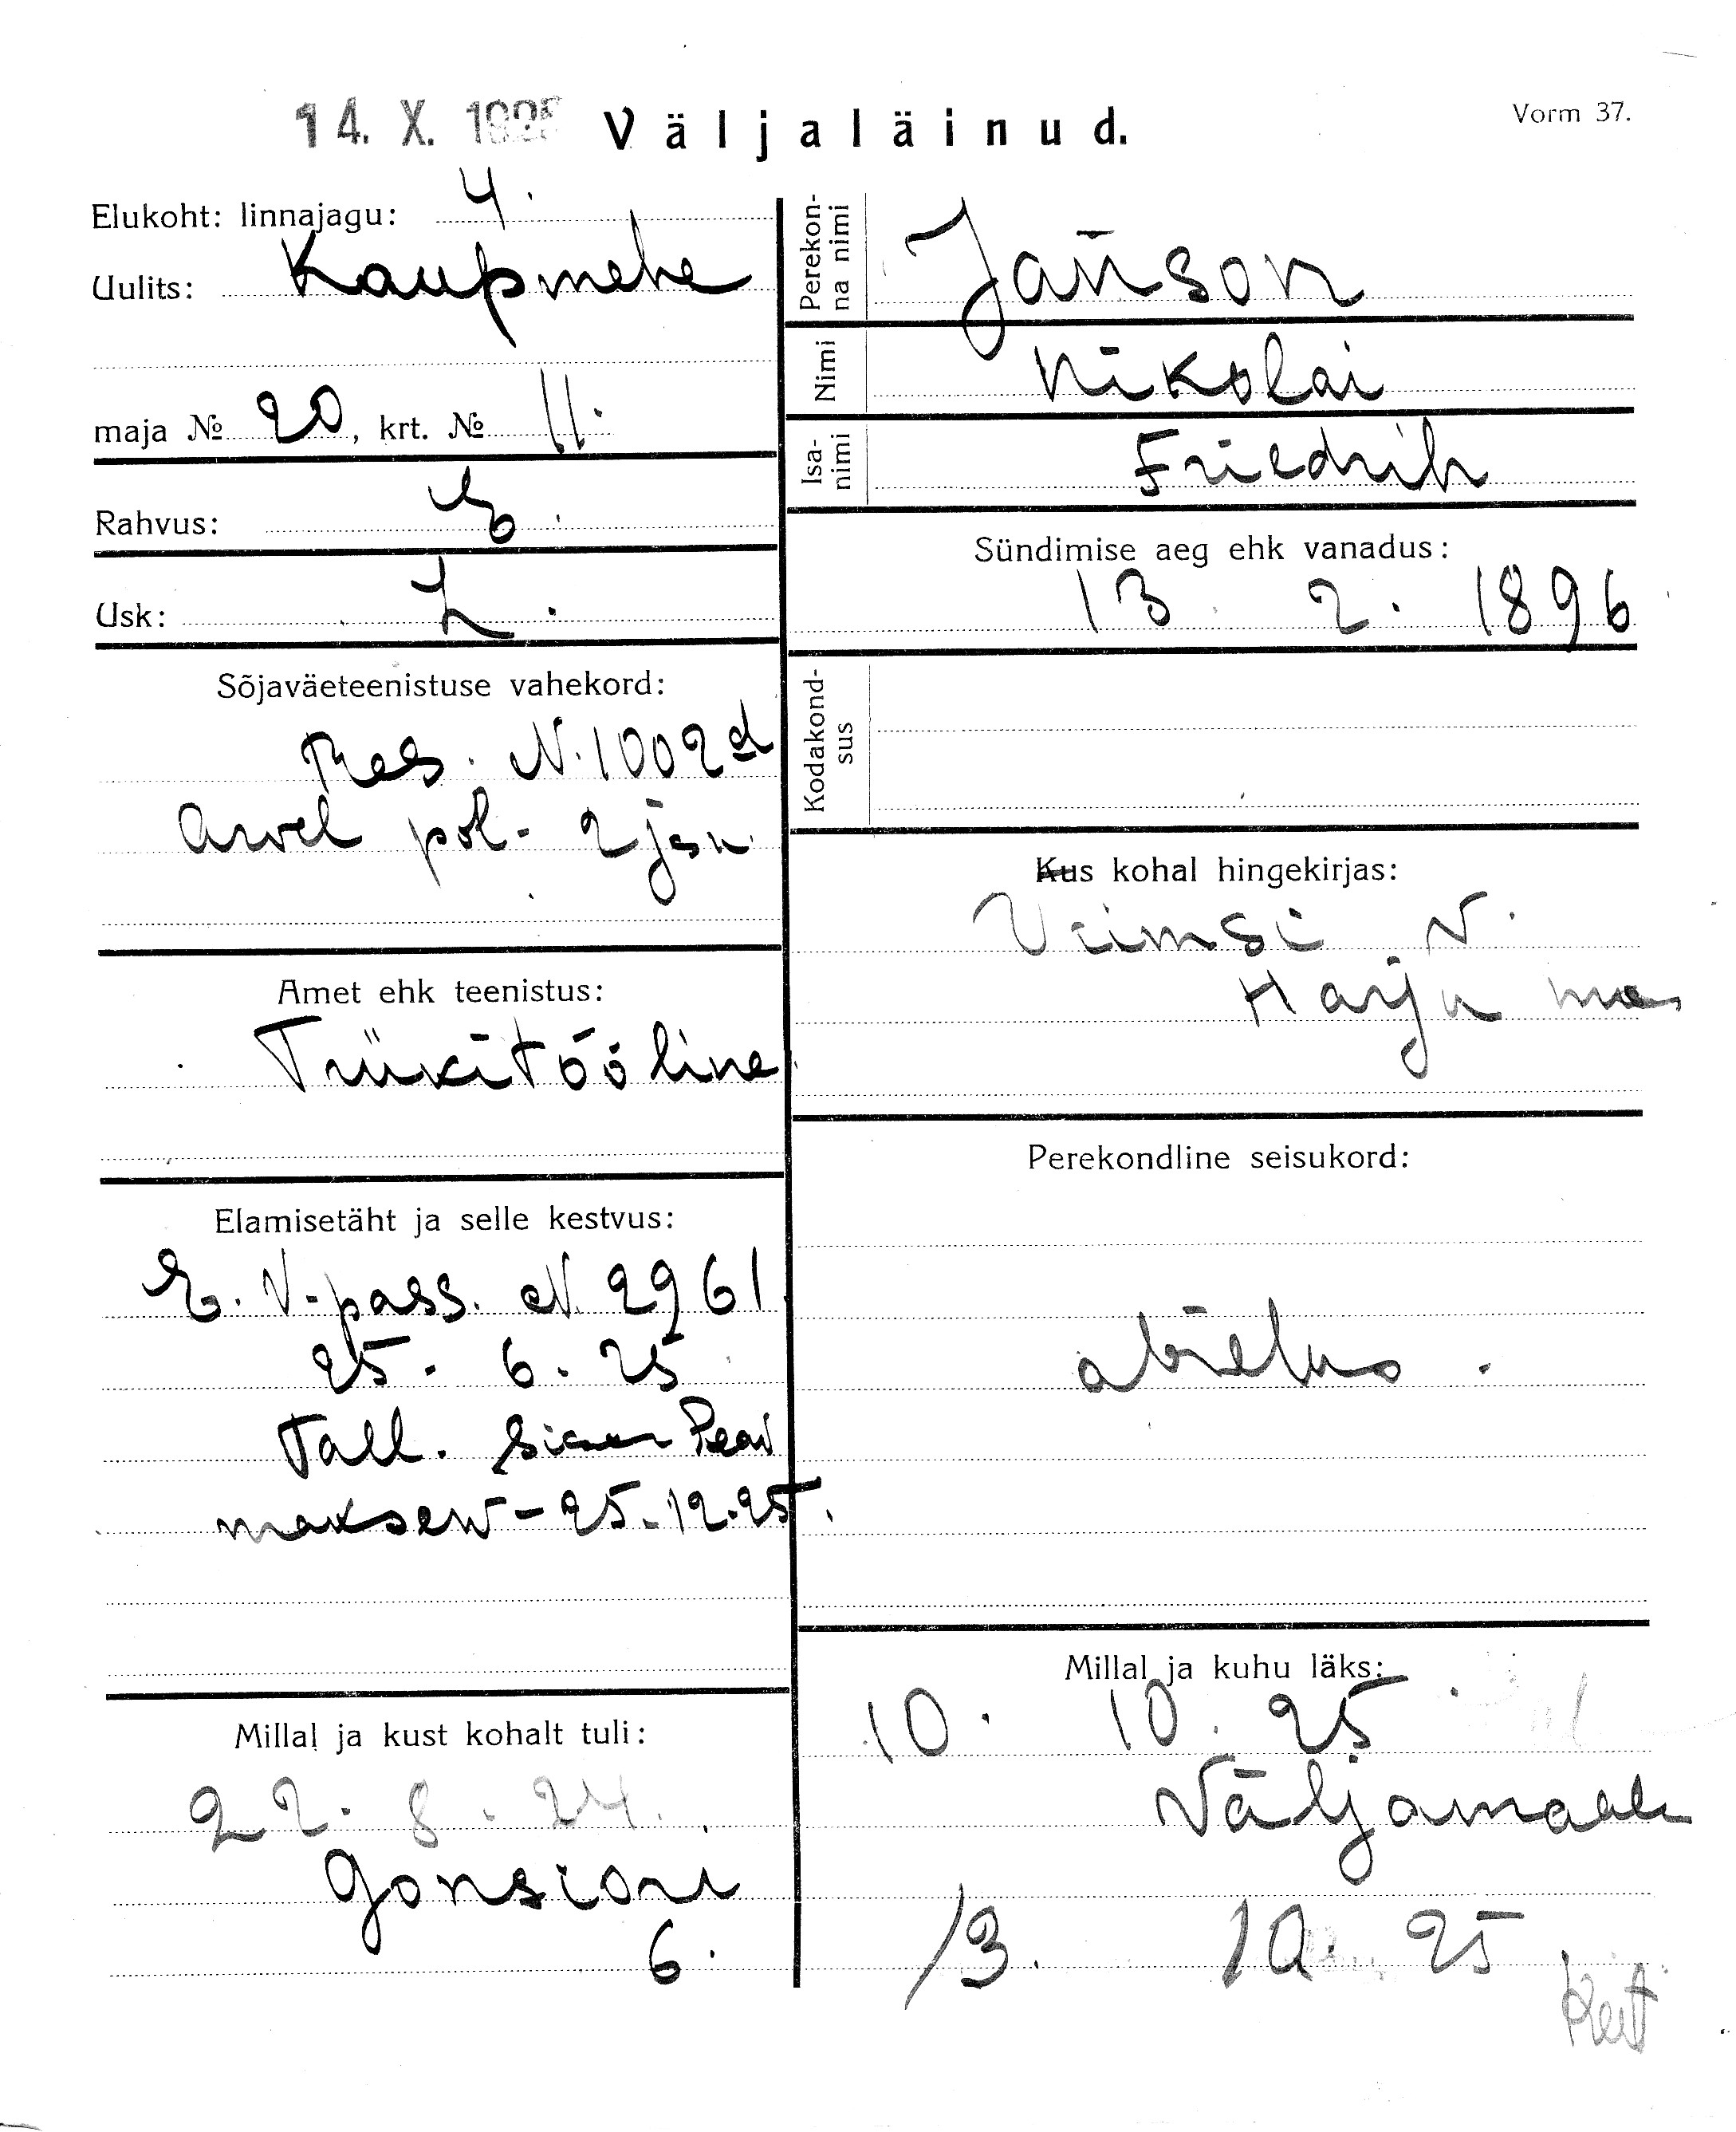 14. X. 1925 Väljaläinud.
Vorm 37.
Elukoht: linnajagu: 4.
Uulits: Kaupmehe
maja № 20, krt. № 11.
Rahvus: E.
Usk: L.
Sõjaväeteenistuse vahekord:
Res. N. 1002 d
Arvel pol. 2 jsk.
Amet ehk teenistus:
Trükitööline
Elamisetäht ja selle kestvus:
E. V. pass. N. 2961
25. 6. 25
Tall.
maksew - 25.12.25.
Millal ja kust kohalt tuli:
22. 8. 24.
Gonsiori
6.
Perekonna nimi
Janson
Nimi
Nikolai
Isanimi
Friedrih
Sündimise aeg ehk vanadus:
13. 2. 1896
Kodakondsus
Kus kohal hingekirjas:
Viimsi v.
Harju maa
Perekondline seisukord:
abielus.
Millal ja kuhu läks:
10. 10. 25
Väljamaale
13. 10. 25